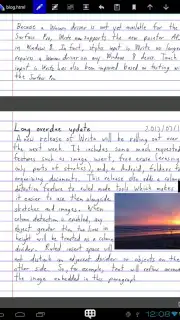 blog.html
Because a Wacom driver is not yet available for the
Surface Pro, Write now supports the new pointer API
in Windows 8. In fact, stylus input in Write no longer
requires a Wacom driver on any Windows 8 device. Touch
input in Write has also been improved based on testing on
the Surface Pro.
Long overdue update
A new release of Write will be rolling out over
the next week. It includes some much requested
features such as image insert, free erase (erasing
only parts of strokes), and, on Android, folders to
organizing documents. This release also adds a column
detection feature to ruled mode tools which makes
it easier to use them alongside
sketches and images. When
column detection is enabled, any
object greater than two lines in
height will be treated as a column
divider. Ruled insert space will
not disturb an adjacent divider or objects on the
other side. So, for example, text will reflow around
the image embedded in this paragraph.
12:08